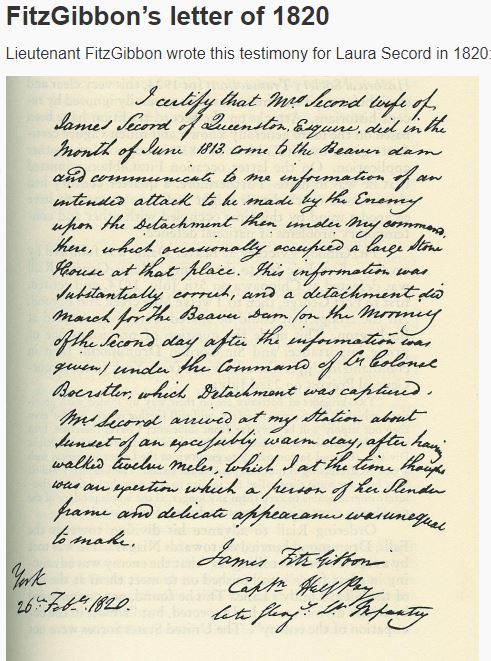 FitzGibbon's letter of 1820
Lieutenant FitzGibbon wrote this testimony for Laura Secord in 1820:
I certify that Mrs Secord wife of
James Secord of Queenston, Esquire, did in the
Month of June 1813. come to the Beaver dam
and communicate to me information of an
intended attack to be made by the Enemy
upon the Detachment then under my command
there, which occasionally occupied a large Stone
House at that place. This information was
substantially correct, and a detachment did
March for the Beaver Dam (on the Morning
of the Second day after the information was
given) under the Command of Lt Colonel
Boerstler, which Detachment was captured.
Mrs Secord arrived at my Station about
Sunset of an excessibly warm day, after having
walked twelve miles, which I at the time thought
was an exertion which a person of her Slender
frame and delicate appearance was unequal
to make.
James FitzGibbon
Captn Half Pay
late Glengy Lt Infantry
York
26th Feby 1820.